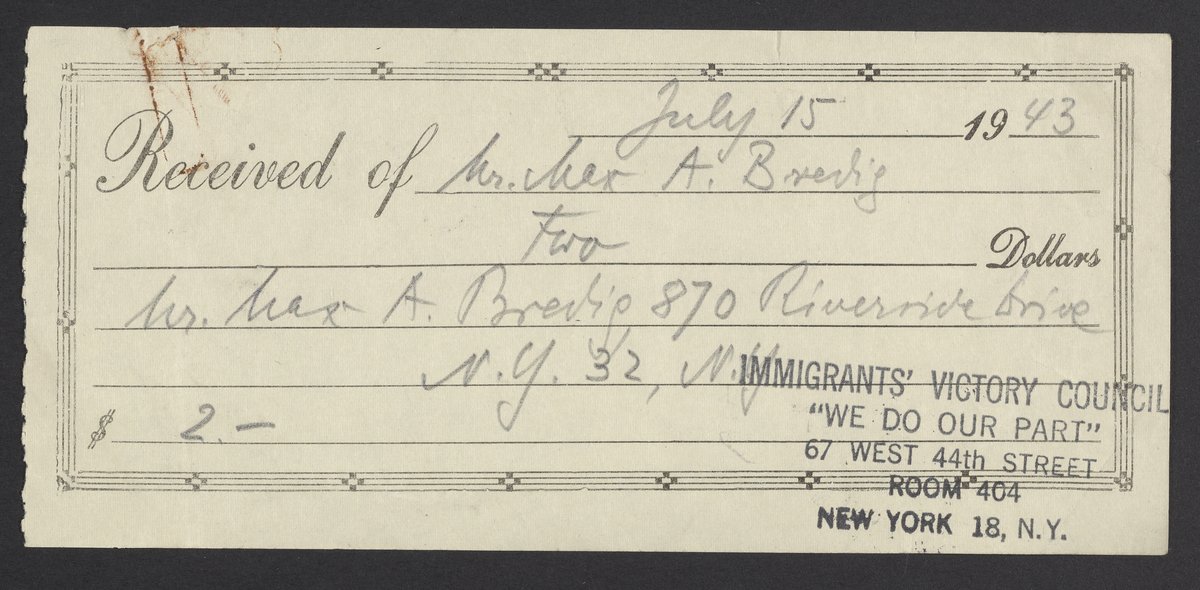 July 15 1943
Received of Mr. Max A. Bredig
Two Dollars
Mr. Max A. Bredig, 870 Riverside Drive
N.Y. 32, N.Y
IMMIGRANTS' VICTORY COUNCIL
$ 2.—
"WE DO OUR PART"
67 WEST 44th STREET
ROOM 404
NEW YORK 18, N.Y.